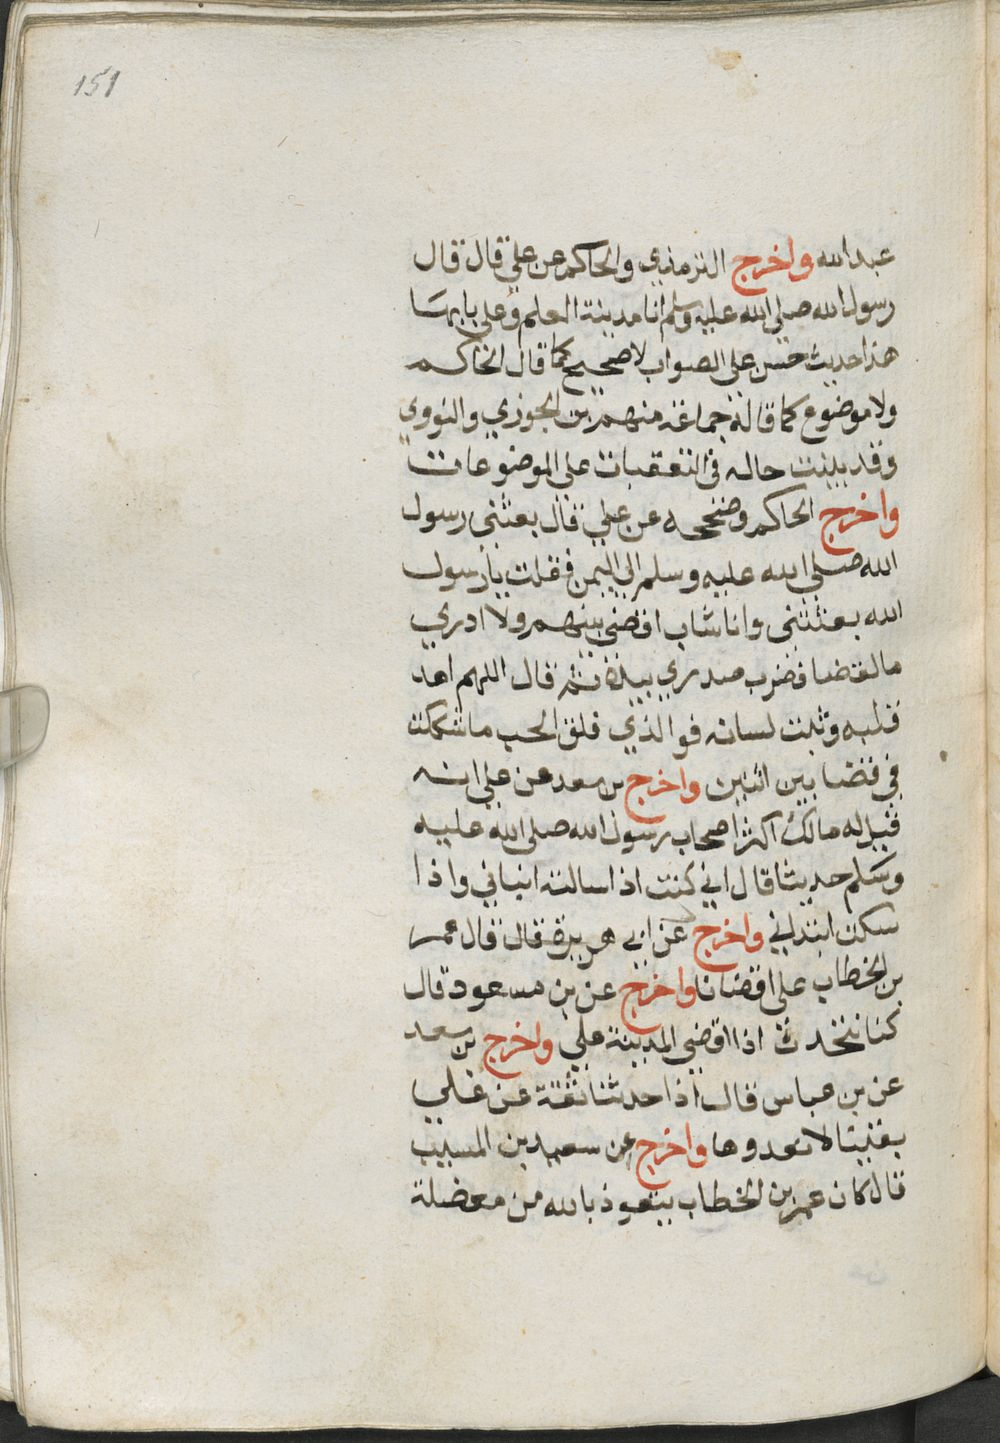 151
عبد الله واخرج الترمذي والحاكم عن علي قال قال
رسول الله صلى الله عليه وسلم انا مدينة العلم وعلي بابها
هذا حديث حسن على الصواب لا صحيح كما قال الحاكم
ولا موضوع كما قاله جماعة منهم بن الجوزي والنووي
وقد بينت حاله في التعقبات على الموضوعات
واخرج الحاكم وصححه عن علي قال بعثني رسول
الله صلى الله عليه وسلم الى اليمن فقلت يا رسول
الله بعثتني وانا شاب اقضي بينهم ولا ادري
ما القضا فضرب صدري بيده ثم قال اللهم اهد
قلبه وثبت لسانه فو الذي فلق الحب ما شككت
في قضا بين اثنين واخرج بن سعد عن علي انه
قيل له مالك اكثر اصحاب رسول الله صلى الله عليه
وسلم حديثا قال اني كنت اذا سالته انباني واذا
سكت ابتداني واخرج عن ابي هريرة قال قال عمر
بن الخطاب علي اقضانا واخرج عن بن مسعود قال
كنا نتحدث اذا اقضي المدينة علي واخرج بن سعد
عن بن عباس قال اذا حدثنا ثقة عن علي
بفتيا لا نعدوها واخرج عن سعيد بن المسيب
قال كان عمر بن الخطاب يتعوذ بالله من معضلة